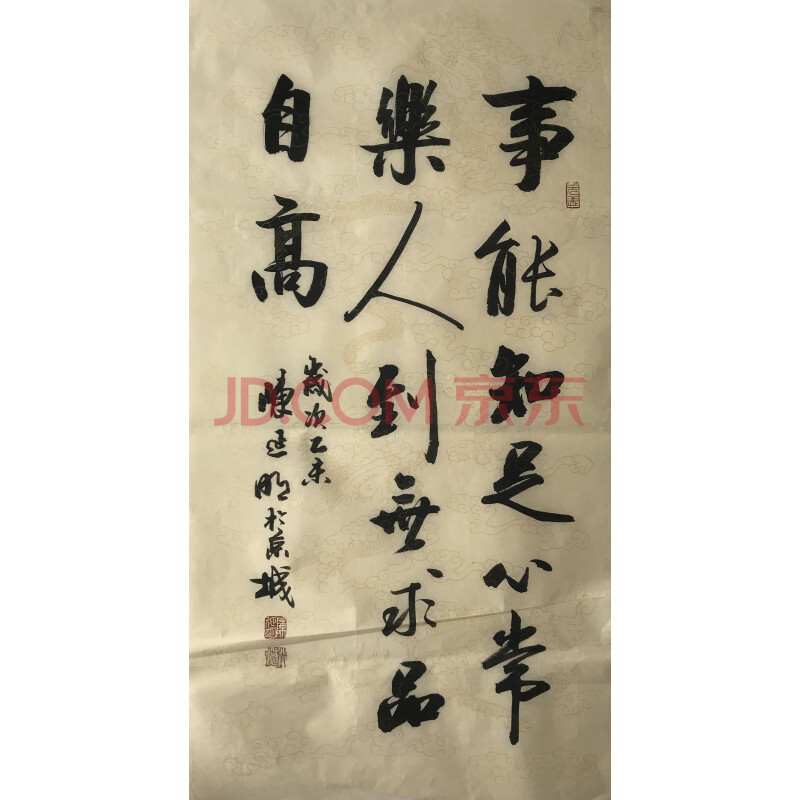 事能知足心常
樂人到無求品
自高
歲次乙未
陳延明於京城
JD.COM 京东